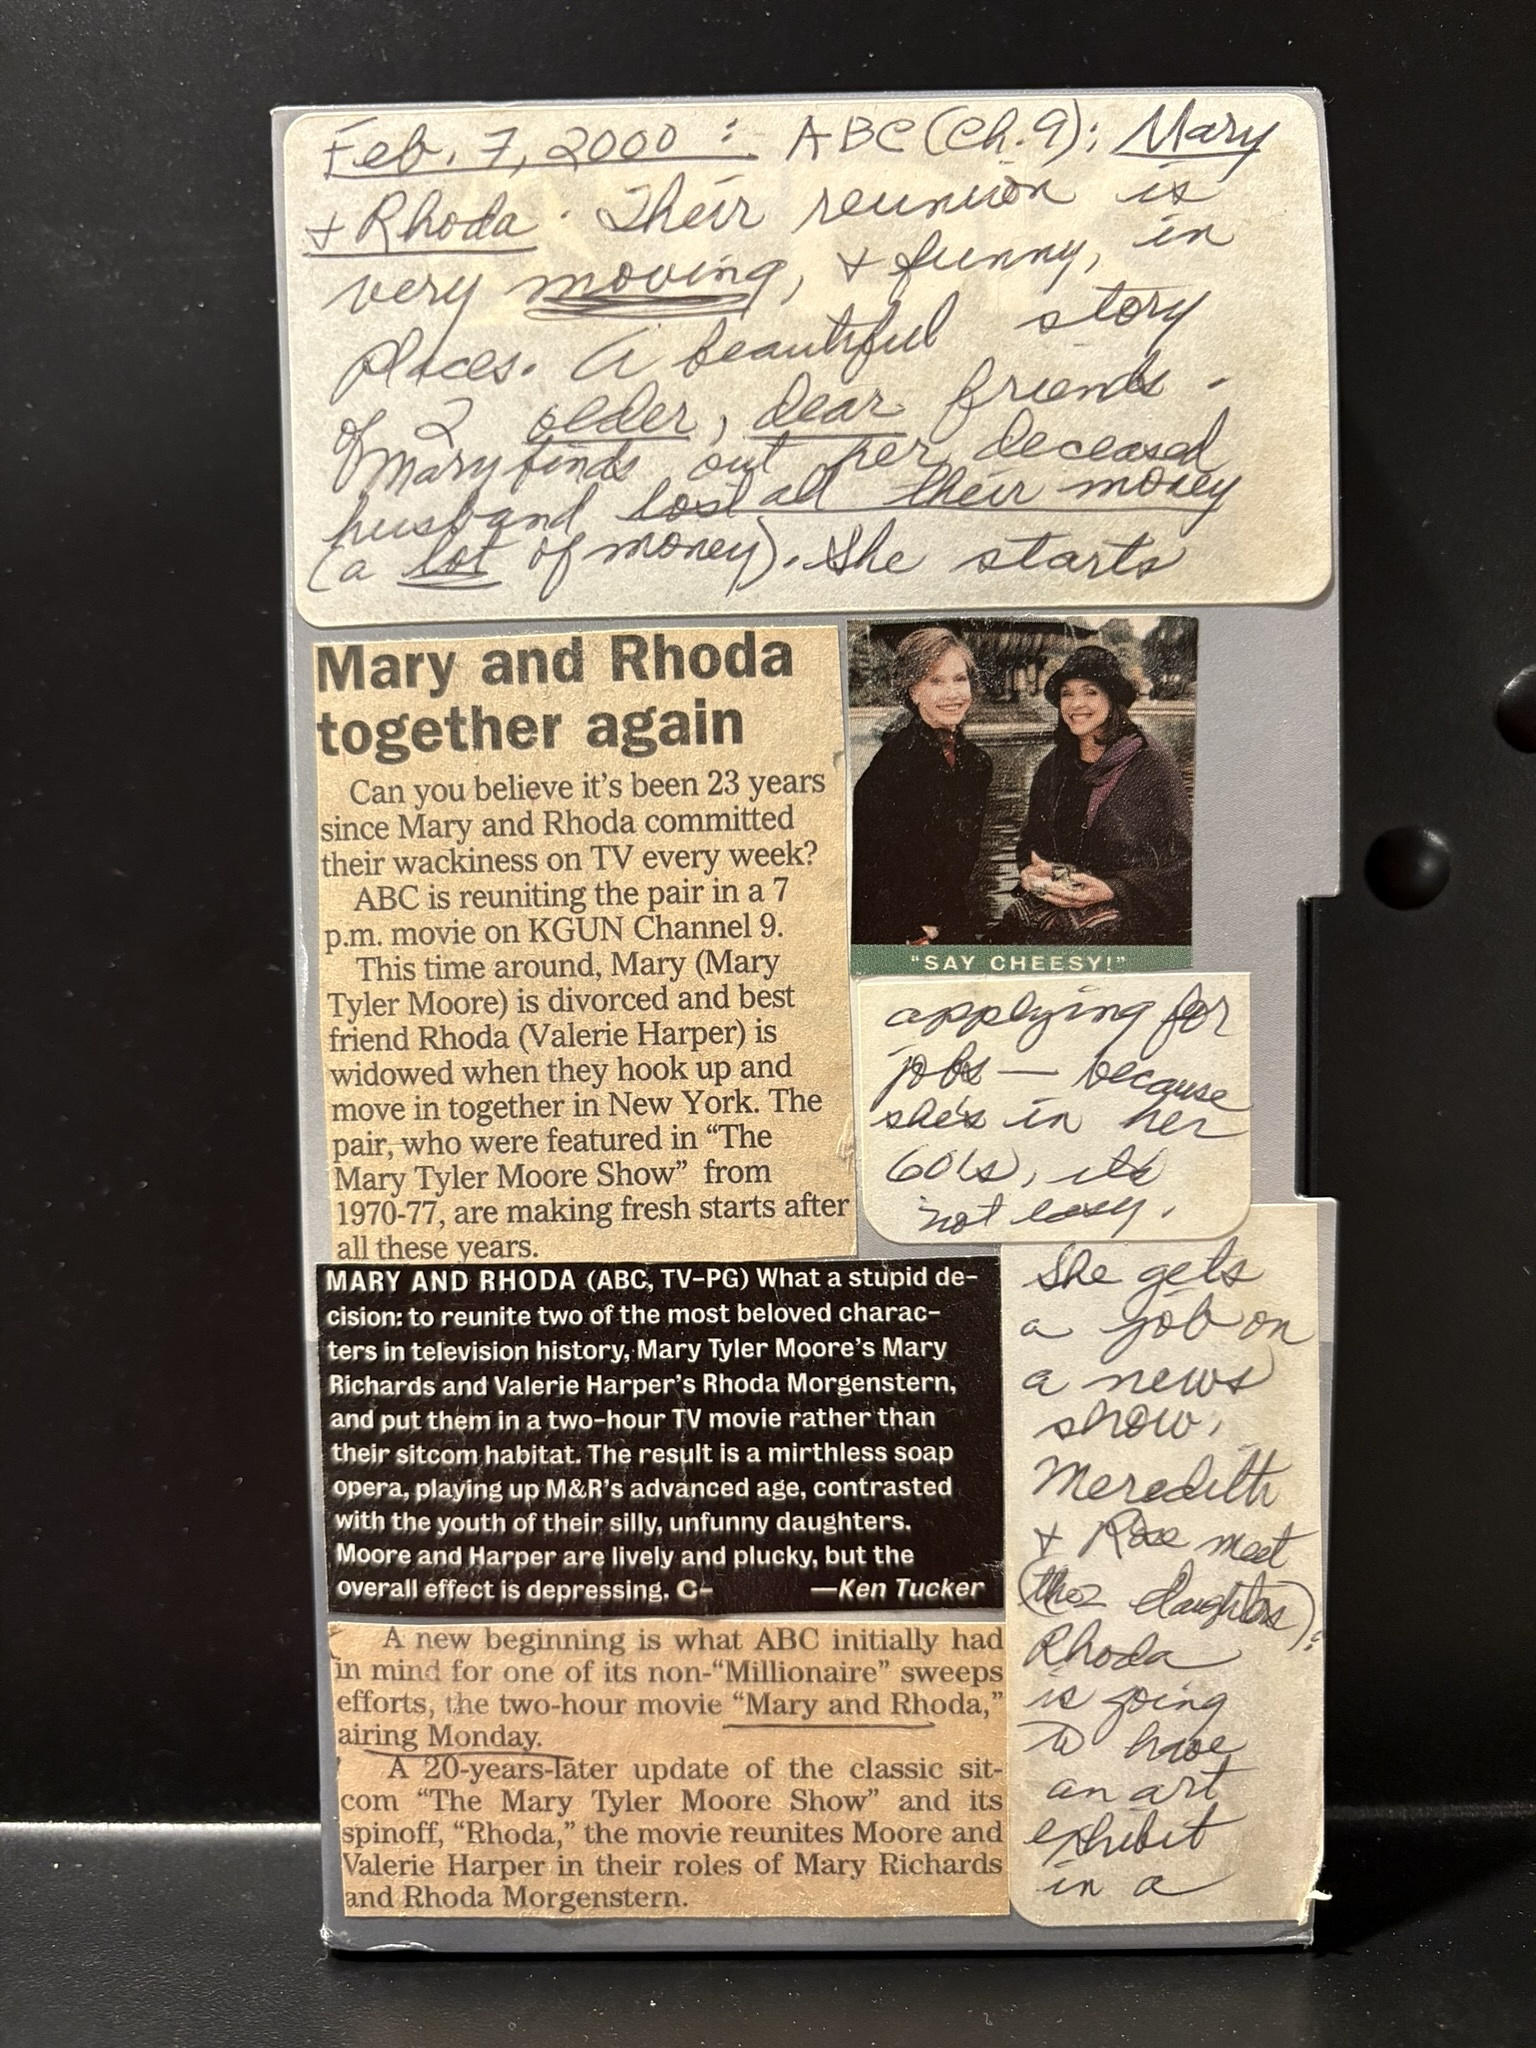 Feb. 7, 2000 : ABC (Ch. 9): Mary
+ Rhoda. Their reunion is
very moving, + funny, in
places. A beautiful story
of 2 older, dear friends -
Mary finds out her deceased
husband lost all their money
(a lot of money). She starts
Mary and Rhoda
together again
Can you believe it's been 23 years
since Mary and Rhoda committed
their wackiness on TV every week?
ABC is reuniting the pair in a 7
p.m. movie on KGUN Channel 9.
This time around, Mary (Mary
Tyler Moore) is divorced and best
friend Rhoda (Valerie Harper) is
widowed when they hook up and
move in together in New York. The
pair, who were featured in “The
Mary Tyler Moore Show” from
1970-77, are making fresh starts after
all these years.
"SAY CHEESY!"
applying for
jobs — because
she's in her
60's, it's
not easy.
MARY AND RHODA (ABC, TV-PG) What a stupid de-
cision: to reunite two of the most beloved charac-
ters in television history, Mary Tyler Moore's Mary
Richards and Valerie Harper's Rhoda Morgenstern,
and put them in a two-hour TV movie rather than
their sitcom habitat. The result is a mirthless soap
opera, playing up M&R's advanced age, contrasted
with the youth of their silly, unfunny daughters.
Moore and Harper are lively and plucky, but the
overall effect is depressing. C- —Ken Tucker
She gets
a job on
a news
show.
Meredith
+ Rose meet
(the 2 daughters):
Rhoda
is going
to have
an art
exhibit
in a
A new beginning is what ABC initially had
in mind for one of its non-“Millionaire” sweeps
efforts, the two-hour movie “Mary and Rhoda,”
airing Monday.
A 20-years-later update of the classic sit-
com “The Mary Tyler Moore Show” and its
spinoff, “Rhoda,” the movie reunites Moore and
Valerie Harper in their roles of Mary Richards
and Rhoda Morgenstern.